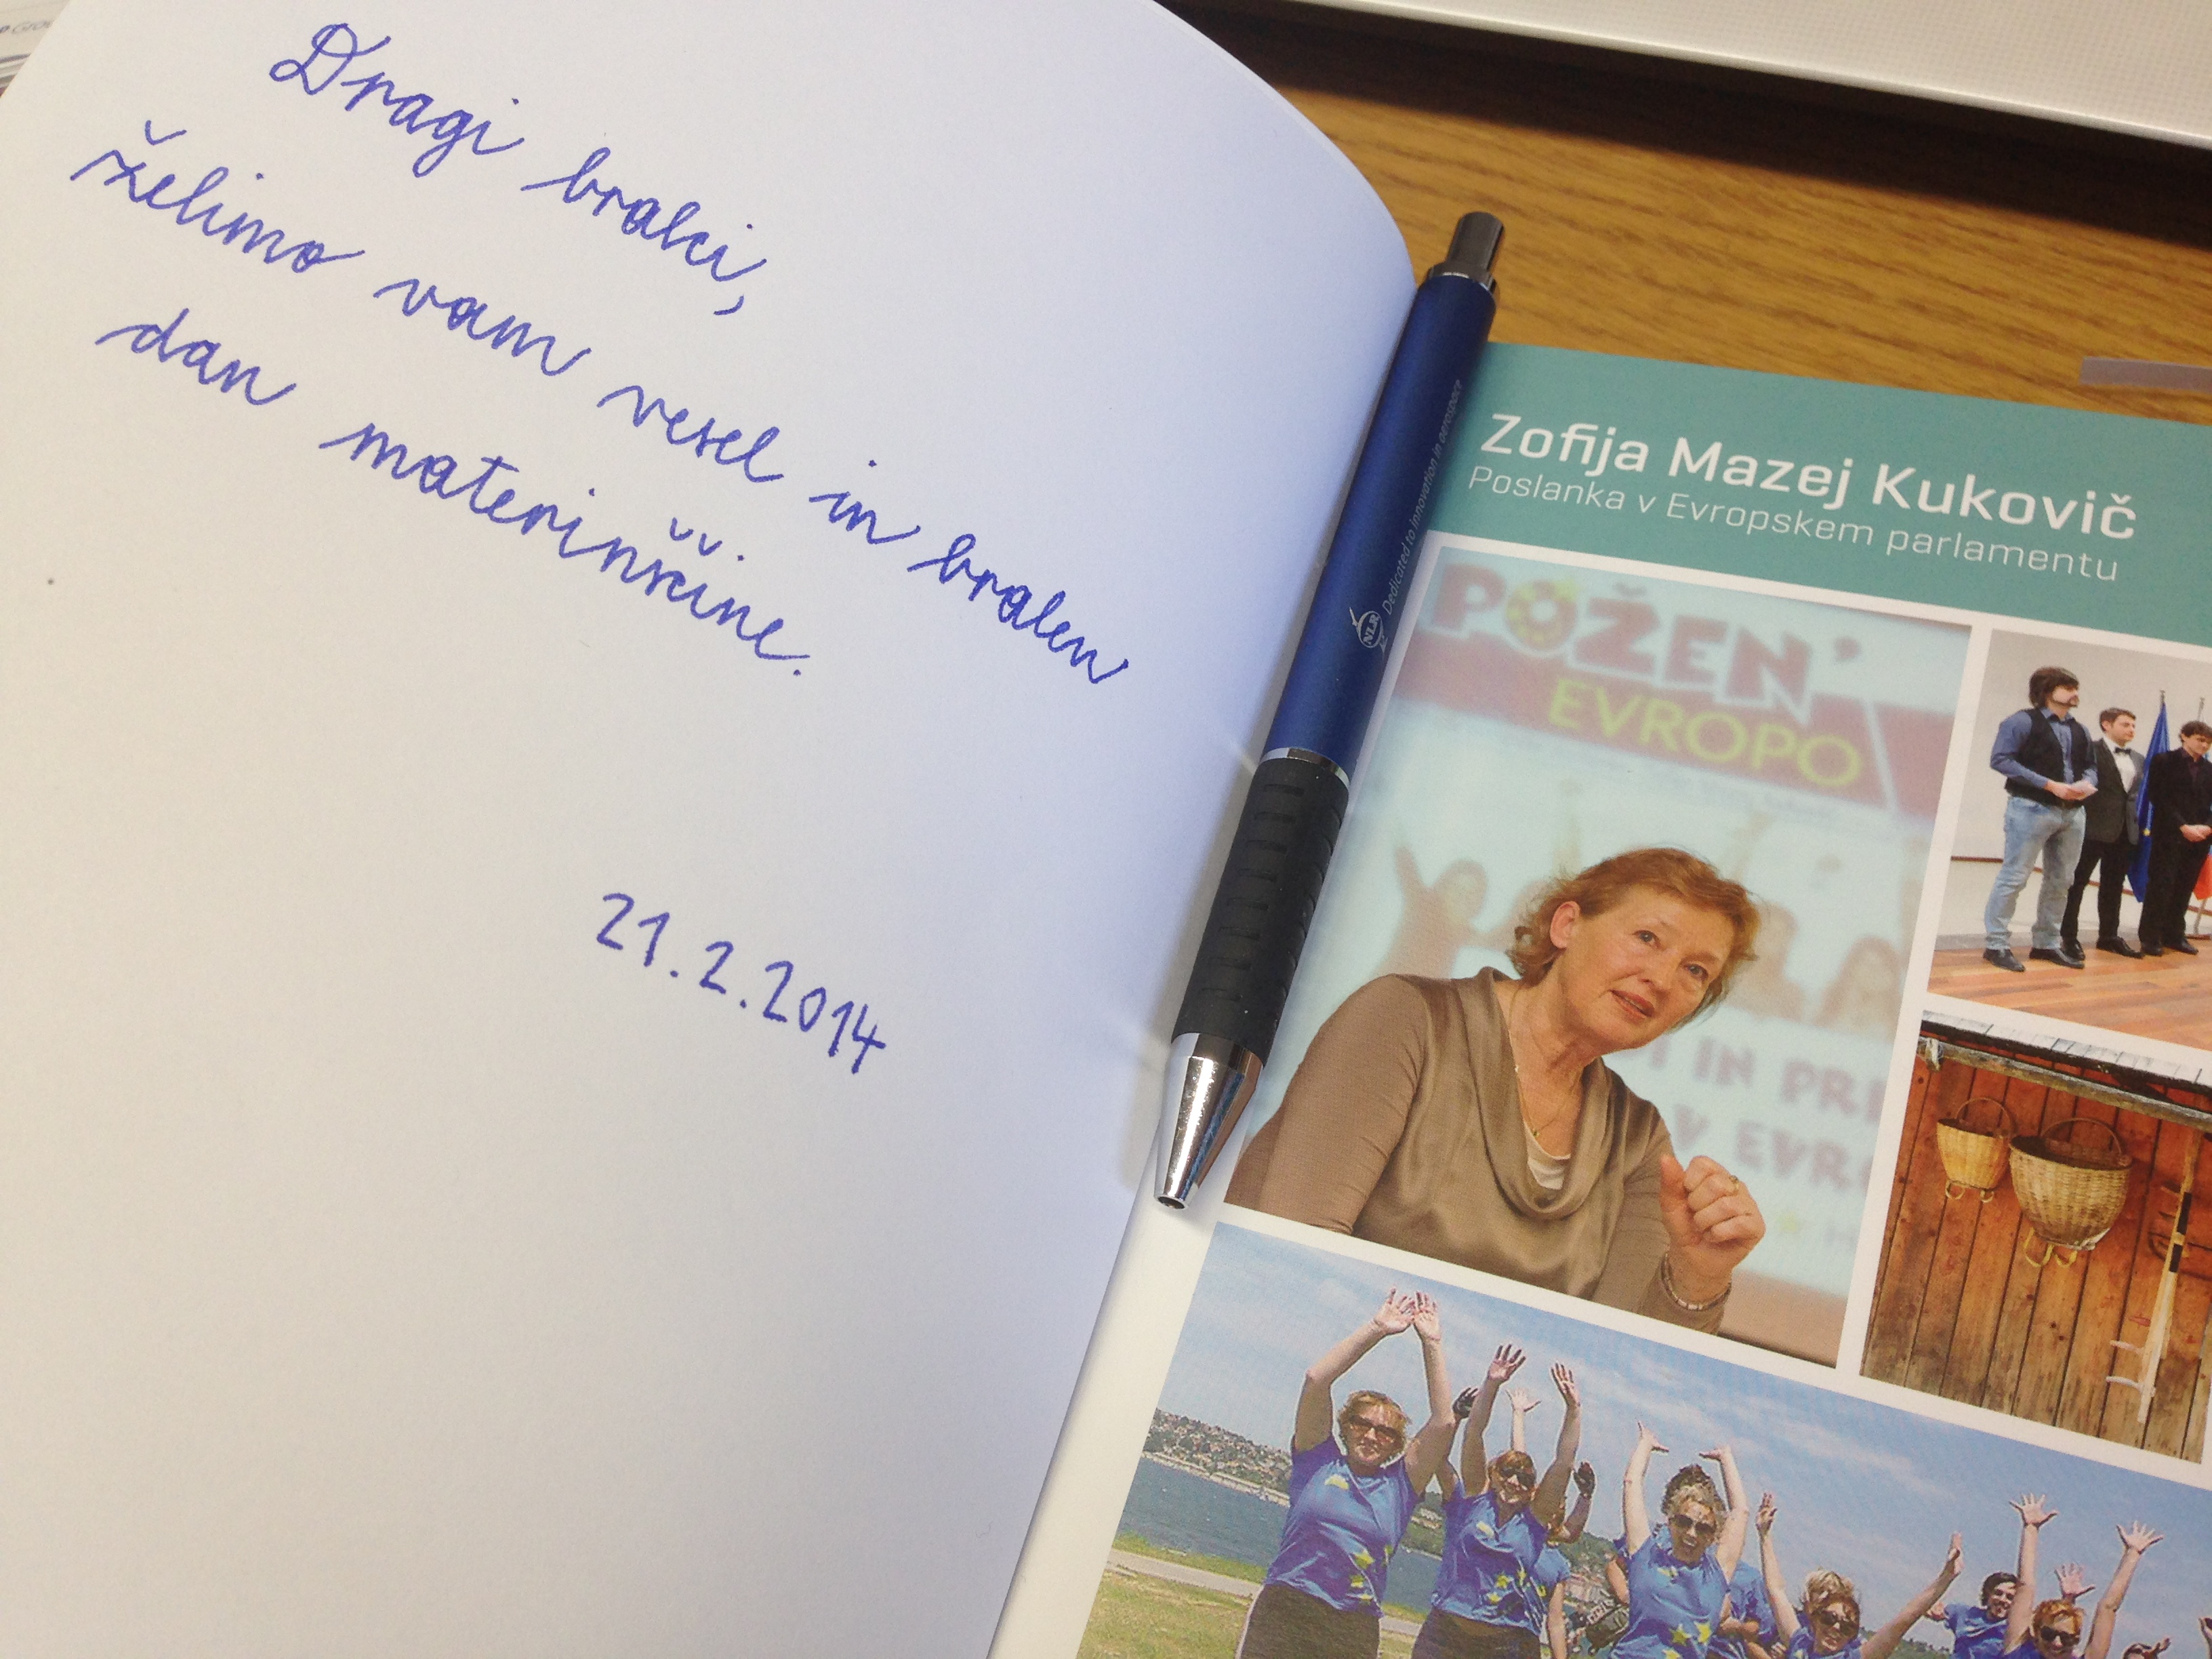 Dragi bralci,
želimo vam vesel in bralen
dan materinščine.
21.2.2014
NLR Dedicated to innovation in aerospace
Zofija Mazej Kukovič
Poslanka v Evropskem parlamentu
POŽEN'
EVROPO
IN PRI
V EVRO